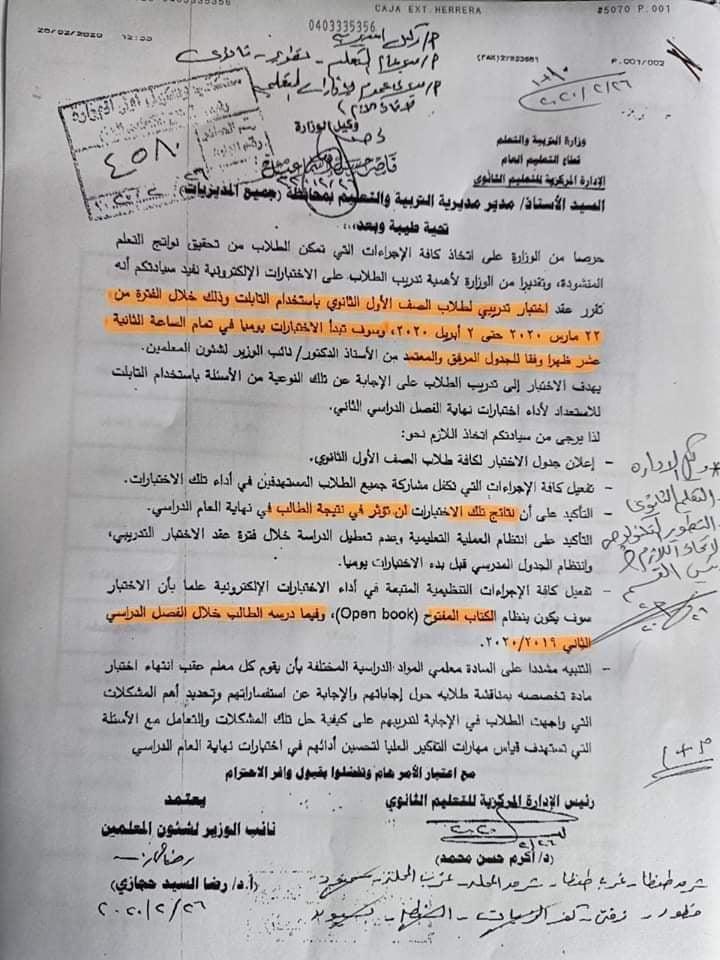 CAJA EXT. HERRERA
#5070 P.001
0403335356
P.001/002
وكيل الوزارة
وزارة التربية والتعلم
قطاع التعليم العام
الإدارة المركزية للتعليم الثانوي
السيد الأستاذ/ مدير مديرية التربية والتعليم بمحافظة (جميع المديريات)
تحية طيبة وبعد،،،
حرصا من الوزارة على اتخاذ كافة الإجراءات التي تمكن الطلاب من تحقيق نواتج التعلم
المنشودة، وتقديرا من الوزارة لأهمية تدريب الطلاب على الاختبارات الإلكترونية نفيد سيادتكم أنه
تقرر عقد اختبار تدريبي لطلاب الصف الأول الثانوي باستخدام التابلت وذلك خلال الفترة من
٢٢ مارس ٢٠٢٠ حتى ٢ أبريل ٢٠٢٠، وسوف تبدأ الاختبارات يوميا في تمام الساعة الثانية
عشر ظهرا وفقا للجدول المرفق والمعتمد من الأستاذ الدكتور/ نائب الوزير لشئون المعلمين.
يهدف الاختبار إلى تدريب الطلاب على الإجابة عن تلك النوعية من الأسئلة باستخدام التابلت
للاستعداد لأداء اختبارات نهاية الفصل الدراسي الثاني.
لذا يرجى من سيادتكم اتخاذ اللازم نحو:
- إعلان جدول الاختبار لكافة طلاب الصف الأول الثانوي.
- تفعيل كافة الإجراءات التي تكفل مشاركة جميع الطلاب المستهدفين في أداء تلك الاختبارات.
- التأكيد على أن نتائج تلك الاختبارات لن تؤثر في نتيجة الطالب في نهاية العام الدراسي.
- التأكيد على انتظام العملية التعليمية وعدم تعطيل الدراسة خلال فترة عقد الاختبار التدريبي،
وانتظام الجدول المدرسي قبل بدء الاختبارات يوميا.
- تفعيل كافة الإجراءات التنظيمية المتبعة في أداء الاختبارات الإلكترونية علما بأن الاختبار
سوف يكون بنظام الكتاب المفتوح (Open book)، وفيما درسه الطالب خلال الفصل الدراسي
الثاني ٢٠٢٠/٢٠١٩.
- التنبيه مشددا على السادة معلمي المواد الدراسية المختلفة بأن يقوم كل معلم عقب انتهاء اختبار
مادة تخصصه بمناقشة طلابه حول إجاباتهم والإجابة عن استفساراتهم وتحديد أهم المشكلات
التي واجهت الطلاب في الإجابة لتدريبهم على كيفية حل تلك المشكلات والتعامل مع الأسئلة
التي تستهدف قياس مهارات التفكير العليا لتحسين أدائهم في اختبارات نهاية العام الدراسي
مع اعتبار الأمر هام وتفضلوا بقبول وافر الاحترام
رئيس الإدارة المركزية للتعليم الثانوي
(د/ أكرم حسن محمد)
يعتمد
نائب الوزير لشئون المعلمين
(أ.د/ رضا السيد حجازي)
٢٠٢٠/٢/٢٦